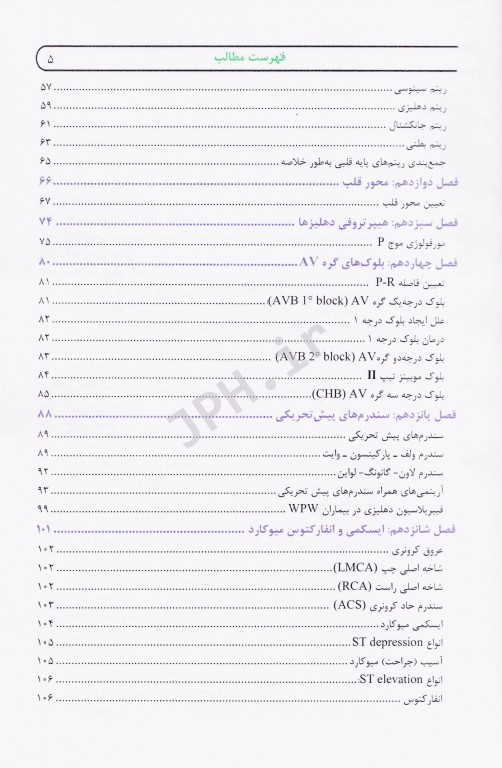 فهرست مطالب ۵
ریتم سینوسی ۵۷
ریتم دهلیزی ۵۹
ریتم جانکشنال ۶۱
ریتم بطنی ۶۳
جمع‌بندی ریتم‌های پایه قلبی به‌طور خلاصه ۶۵
فصل دوازدهم: محور قلب ۶۶
تعیین محور قلب ۶۷
فصل سیزدهم: هیپرتروفی دهلیزها ۷۴
مورفولوژی موج P ۷۵
فصل چهاردهم: بلوک‌های گره AV ۸۰
تعیین فاصله P-R ۸۱
بلوک درجه‌یک گره AV (AVB 1° block) ۸۱
علل ایجاد بلوک درجه ۱ ۸۲
درمان بلوک درجه ۱ ۸۲
بلوک درجه‌دو گره AV (AVB 2° block) ۸۳
بلوک موبیتز تیپ II ۸۴
بلوک درجه سه گره AV (CHB) ۸۵
فصل پانزدهم: سندرم‌های پیش‌تحریکی ۸۸
سندرم‌های پیش تحریکی ۸۹
سندرم ولف ـ پارکینسون ـ وایت ۸۹
سندرم لاون- گانونگ- لواین ۹۲
آریتمی‌های همراه سندرم‌های پیش تحریکی ۹۳
فیبریلاسیون دهلیزی در بیماران WPW ۹۹
فصل شانزدهم: ایسکمی و انفارکتوس میوکارد ۱۰۱
عروق کرونری ۱۰۲
شاخه اصلی چپ (LMCA) ۱۰۲
شاخه اصلی راست (RCA) ۱۰۲
سندرم حاد کرونری (ACS) ۱۰۳
ایسکمی میوکارد ۱۰۴
انواع ST depression ۱۰۵
آسیب (جراحت) میوکارد ۱۰۵
انواع ST elevation ۱۰۶
انفارکتوس ۱۰۶
JPH.ir